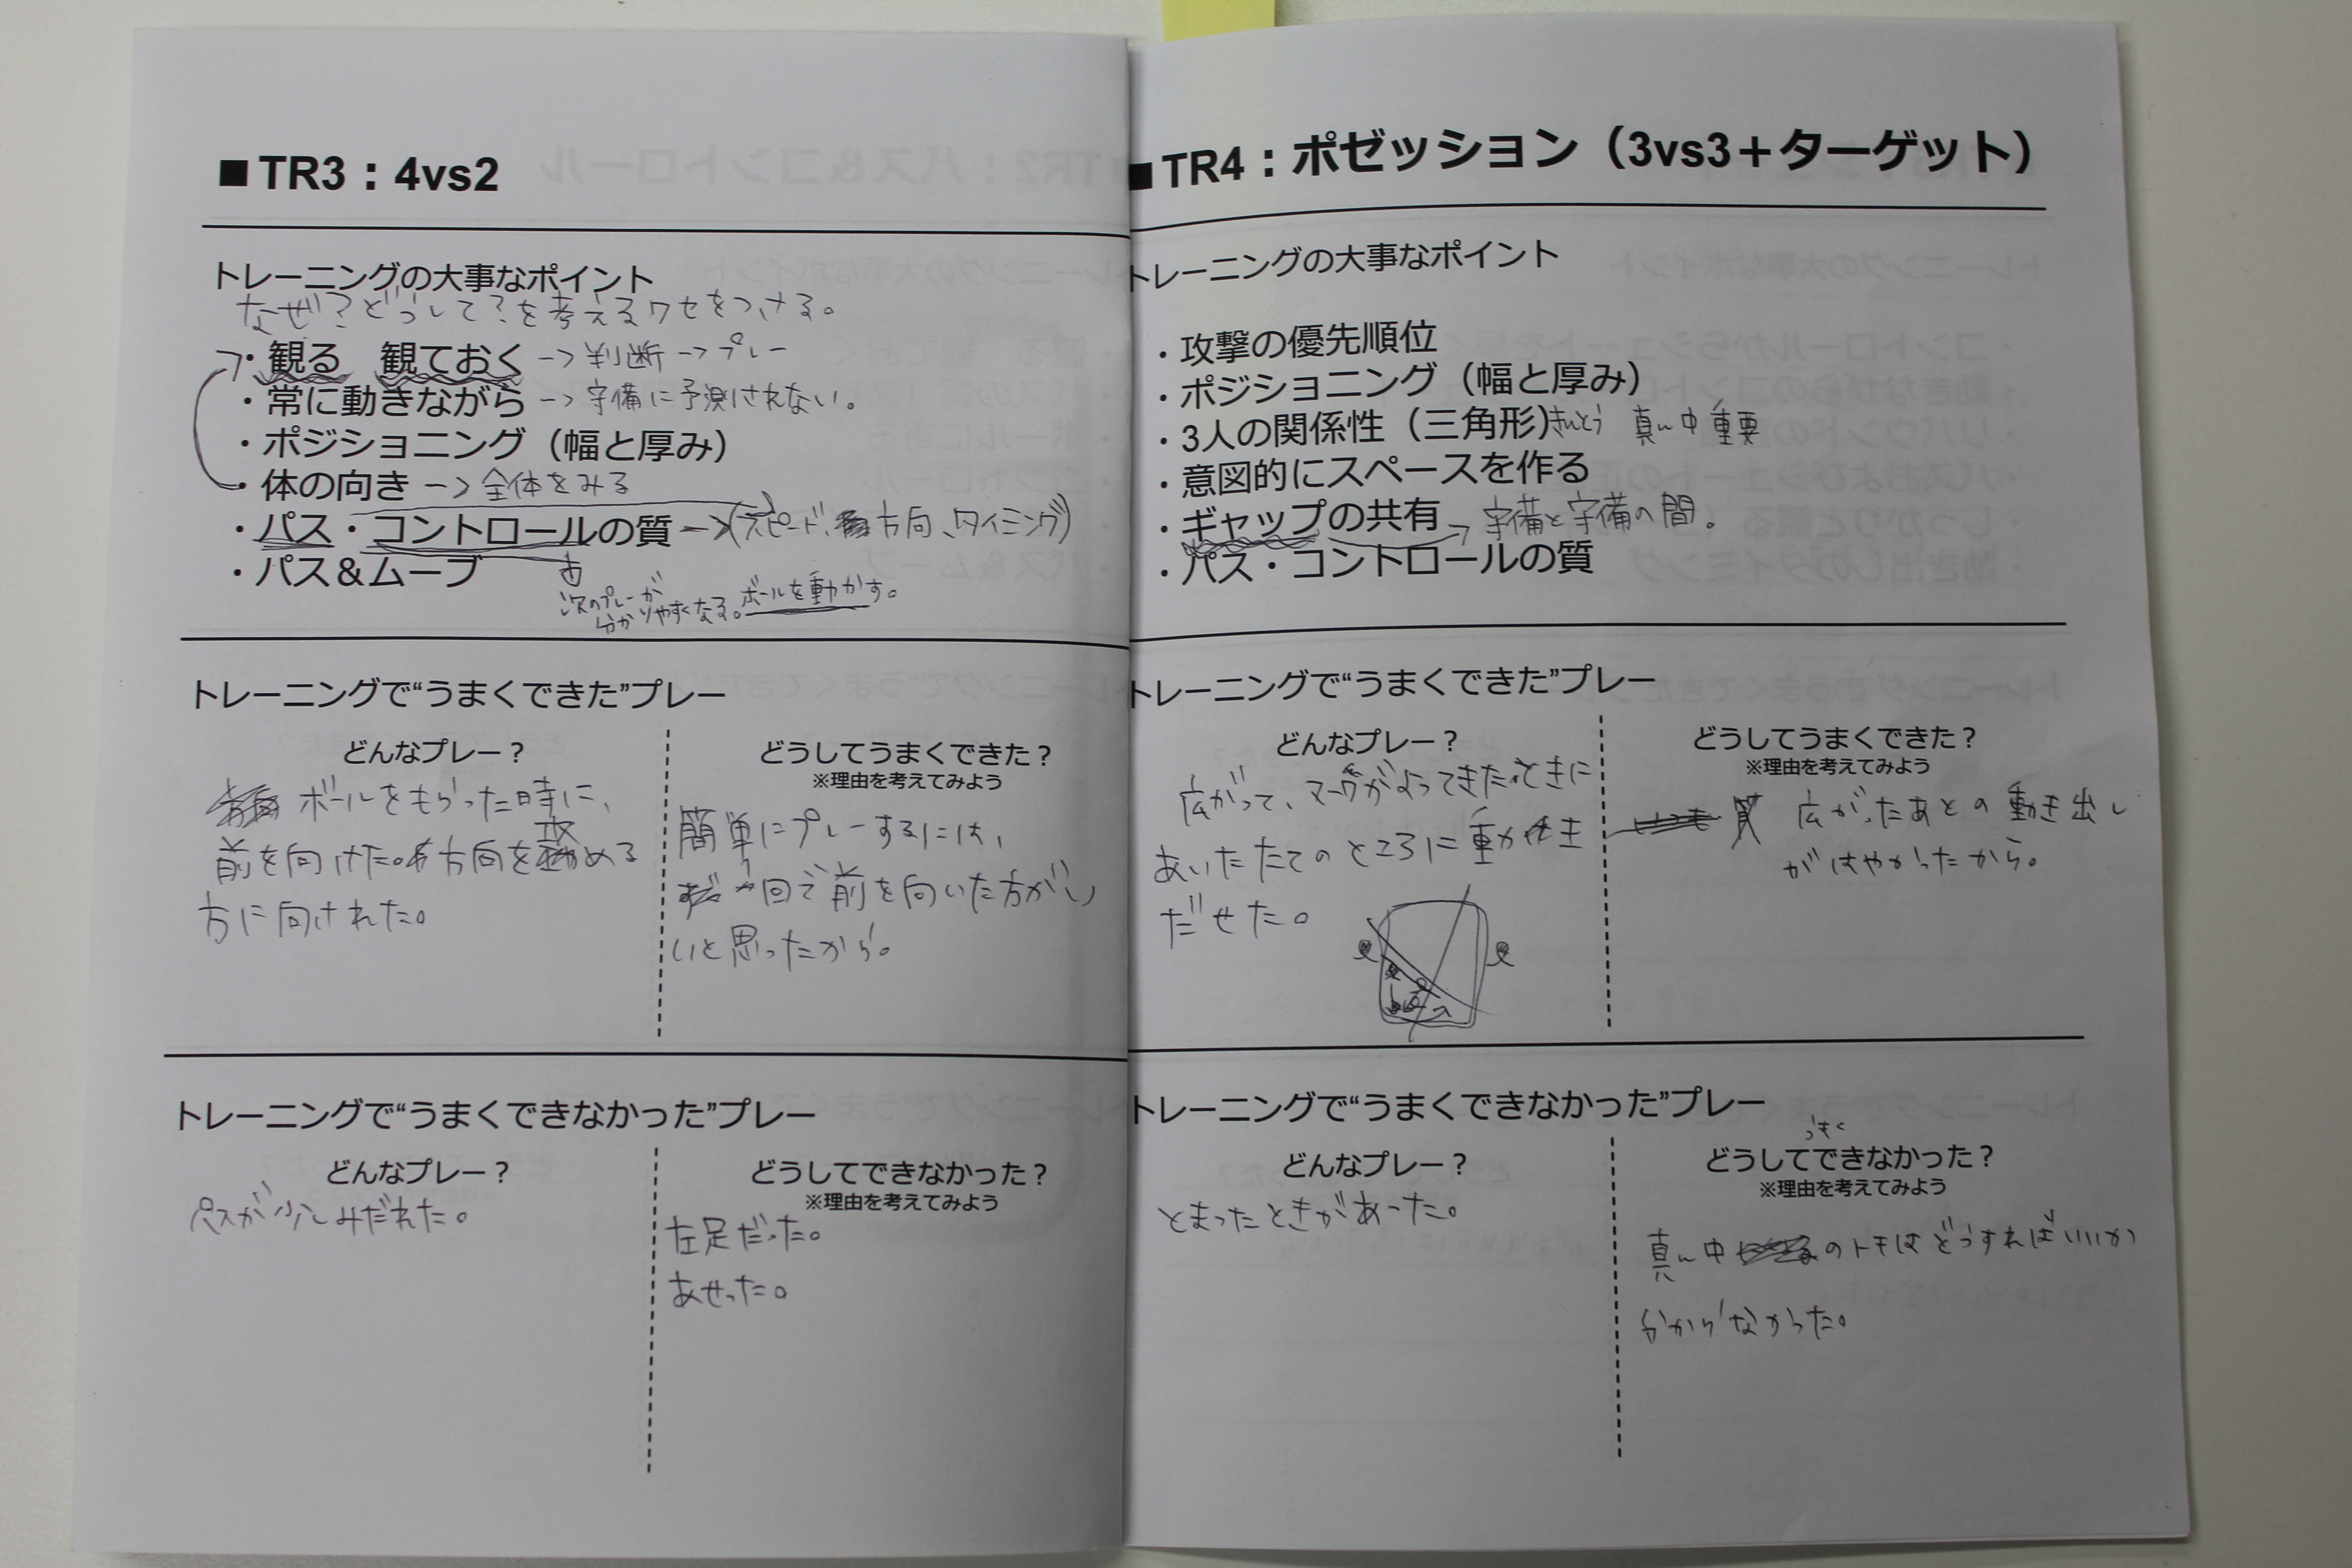 ■TR3：4vs2
トレーニングの大事なポイント
なぜ？どうして？を考えるクセをつける。
・観る　観ておく→判断→プレー
・常に動きながら→守備に予測されない。
・ポジショニング（幅と厚み）
・体の向き→全体をみる
・パス・コントロールの質→（スピード、方向、タイミング）
・パス＆ムーブ
次のプレーが
分かりやすくなる。ボールを動かす。
トレーニングで“うまくできた”プレー
どんなプレー？
ボールをもらった時に、
前を向けた。方向を攻める
方に向けれた。
どうしてうまくできた？
※理由を考えてみよう
簡単にプレーするには、
1回で前を向いた方がい
いと思ったから。
トレーニングで“うまくできなかった”プレー
どんなプレー？
パスが少しみだれた。
どうしてできなかった？
※理由を考えてみよう
左足だった。
あせった。
■TR4：ポゼッション（3vs3＋ターゲット）
トレーニングの大事なポイント
・攻撃の優先順位
・ポジショニング（幅と厚み）
・3人の関係性（三角形）きんとう　真ん中重要
・意図的にスペースを作る
・ギャップの共有→守備と守備の間。
・パス・コントロールの質
トレーニングで“うまくできた”プレー
どんなプレー？
広がって、マークがよってきたときに
あいたたてのところに動き
だせた。
どうしてうまくできた？
※理由を考えてみよう
広がったあとの動き出し
がはやかったから。
トレーニングで“うまくできなかった”プレー
どんなプレー？
とまったときがあった。
うまく
どうしてできなかった？
※理由を考えてみよう
真ん中のトキはどうすればいいか
分からなかった。